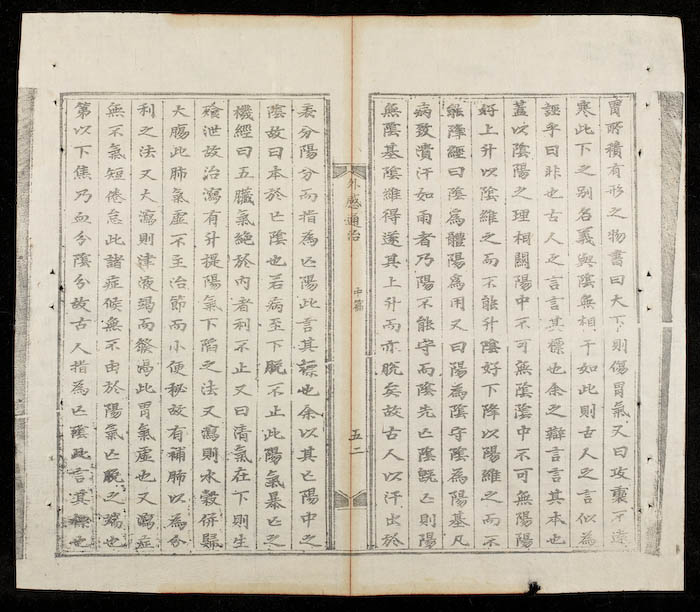 胃所積有形之物書曰大下則傷胃氣又曰攻裏不遠
寒此下之别名義與陰無相干如此則古人之言似為
誣乎曰非也古人之言言其標也余之辯言言其本也
蓋以陰陽之理相關陽中不可無陰陰中不可無陽陽
好上升以陰維之而不能升陰好下降以陽維之而不
能降經曰陰為體陽為用又曰陽為陰守陰為陽基凡
病致潰汗如雨者乃陽不能守而陰先亡陰既亡則陽
無陰基陰維得遂其上升而亦脫矣故古人以汗出於
外感通治 中篇 五二
表分陽分而指為亡陽此言其標也余以其亡陽中之
陰故曰本於亡陰也若病至下脫不止此陽氣暴亡之
機經曰五臟氣絕於內者利不止又曰清氣在下則生
飱泄故治瀉有升提陽氣下陷之法又瀉則水穀併歸
大腸此肺氣虛不主治節而小便秘故有補肺以為分
利之法又大瀉則津液竭而發渴此胃氣虛也又瀉症
無不氣短倦怠此諸症候無不由於陽氣亡脫之端也
第以下焦乃血分陰分故古人指為亡陰此言其標也